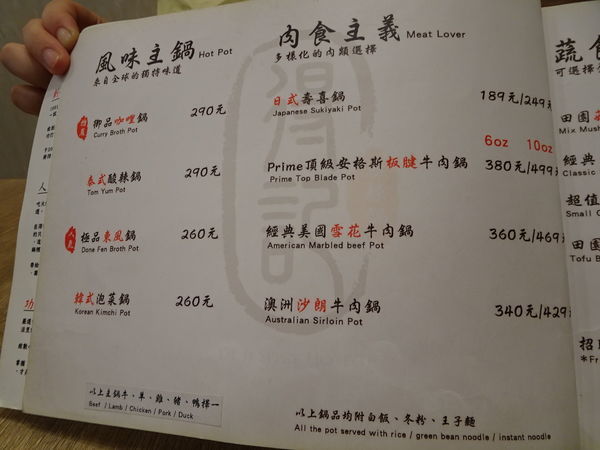 風味主鍋 Hot Pot
來自全球的獨特味道
御品咖哩鍋 290元
Curry Broth Pot
泰式酸辣鍋 290元
Tom Yum Pot
極品東風鍋 260元
Done Fen Broth Pot
韓式泡菜鍋 260元
Korean Kimchi Pot
以上主鍋牛、羊、雞、豬、鴨擇一
Beef / Lamb / Chicken / Pork / Duck
肉食主義 Meat Lover
多樣化的肉類選擇
日式壽喜鍋 189元/249
Japanese Sukiyaki Pot
6oz 10oz
Prime頂級安格斯板腱牛肉鍋 380元/499
Prime Top Blade Pot
經典美國雪花牛肉鍋 360元/469
American Marbled beef Pot
澳洲沙朗牛肉鍋 340元/429
Australian Sirloin Pot
以上鍋品均附白飯、冬粉、王子麵
All the pot served with rice / green bean noodle / instant noodle
蔬食
可選擇
田園
Mix Mush
經典
Classic
超值
Small C
田園
Tofu B
招
*Fr